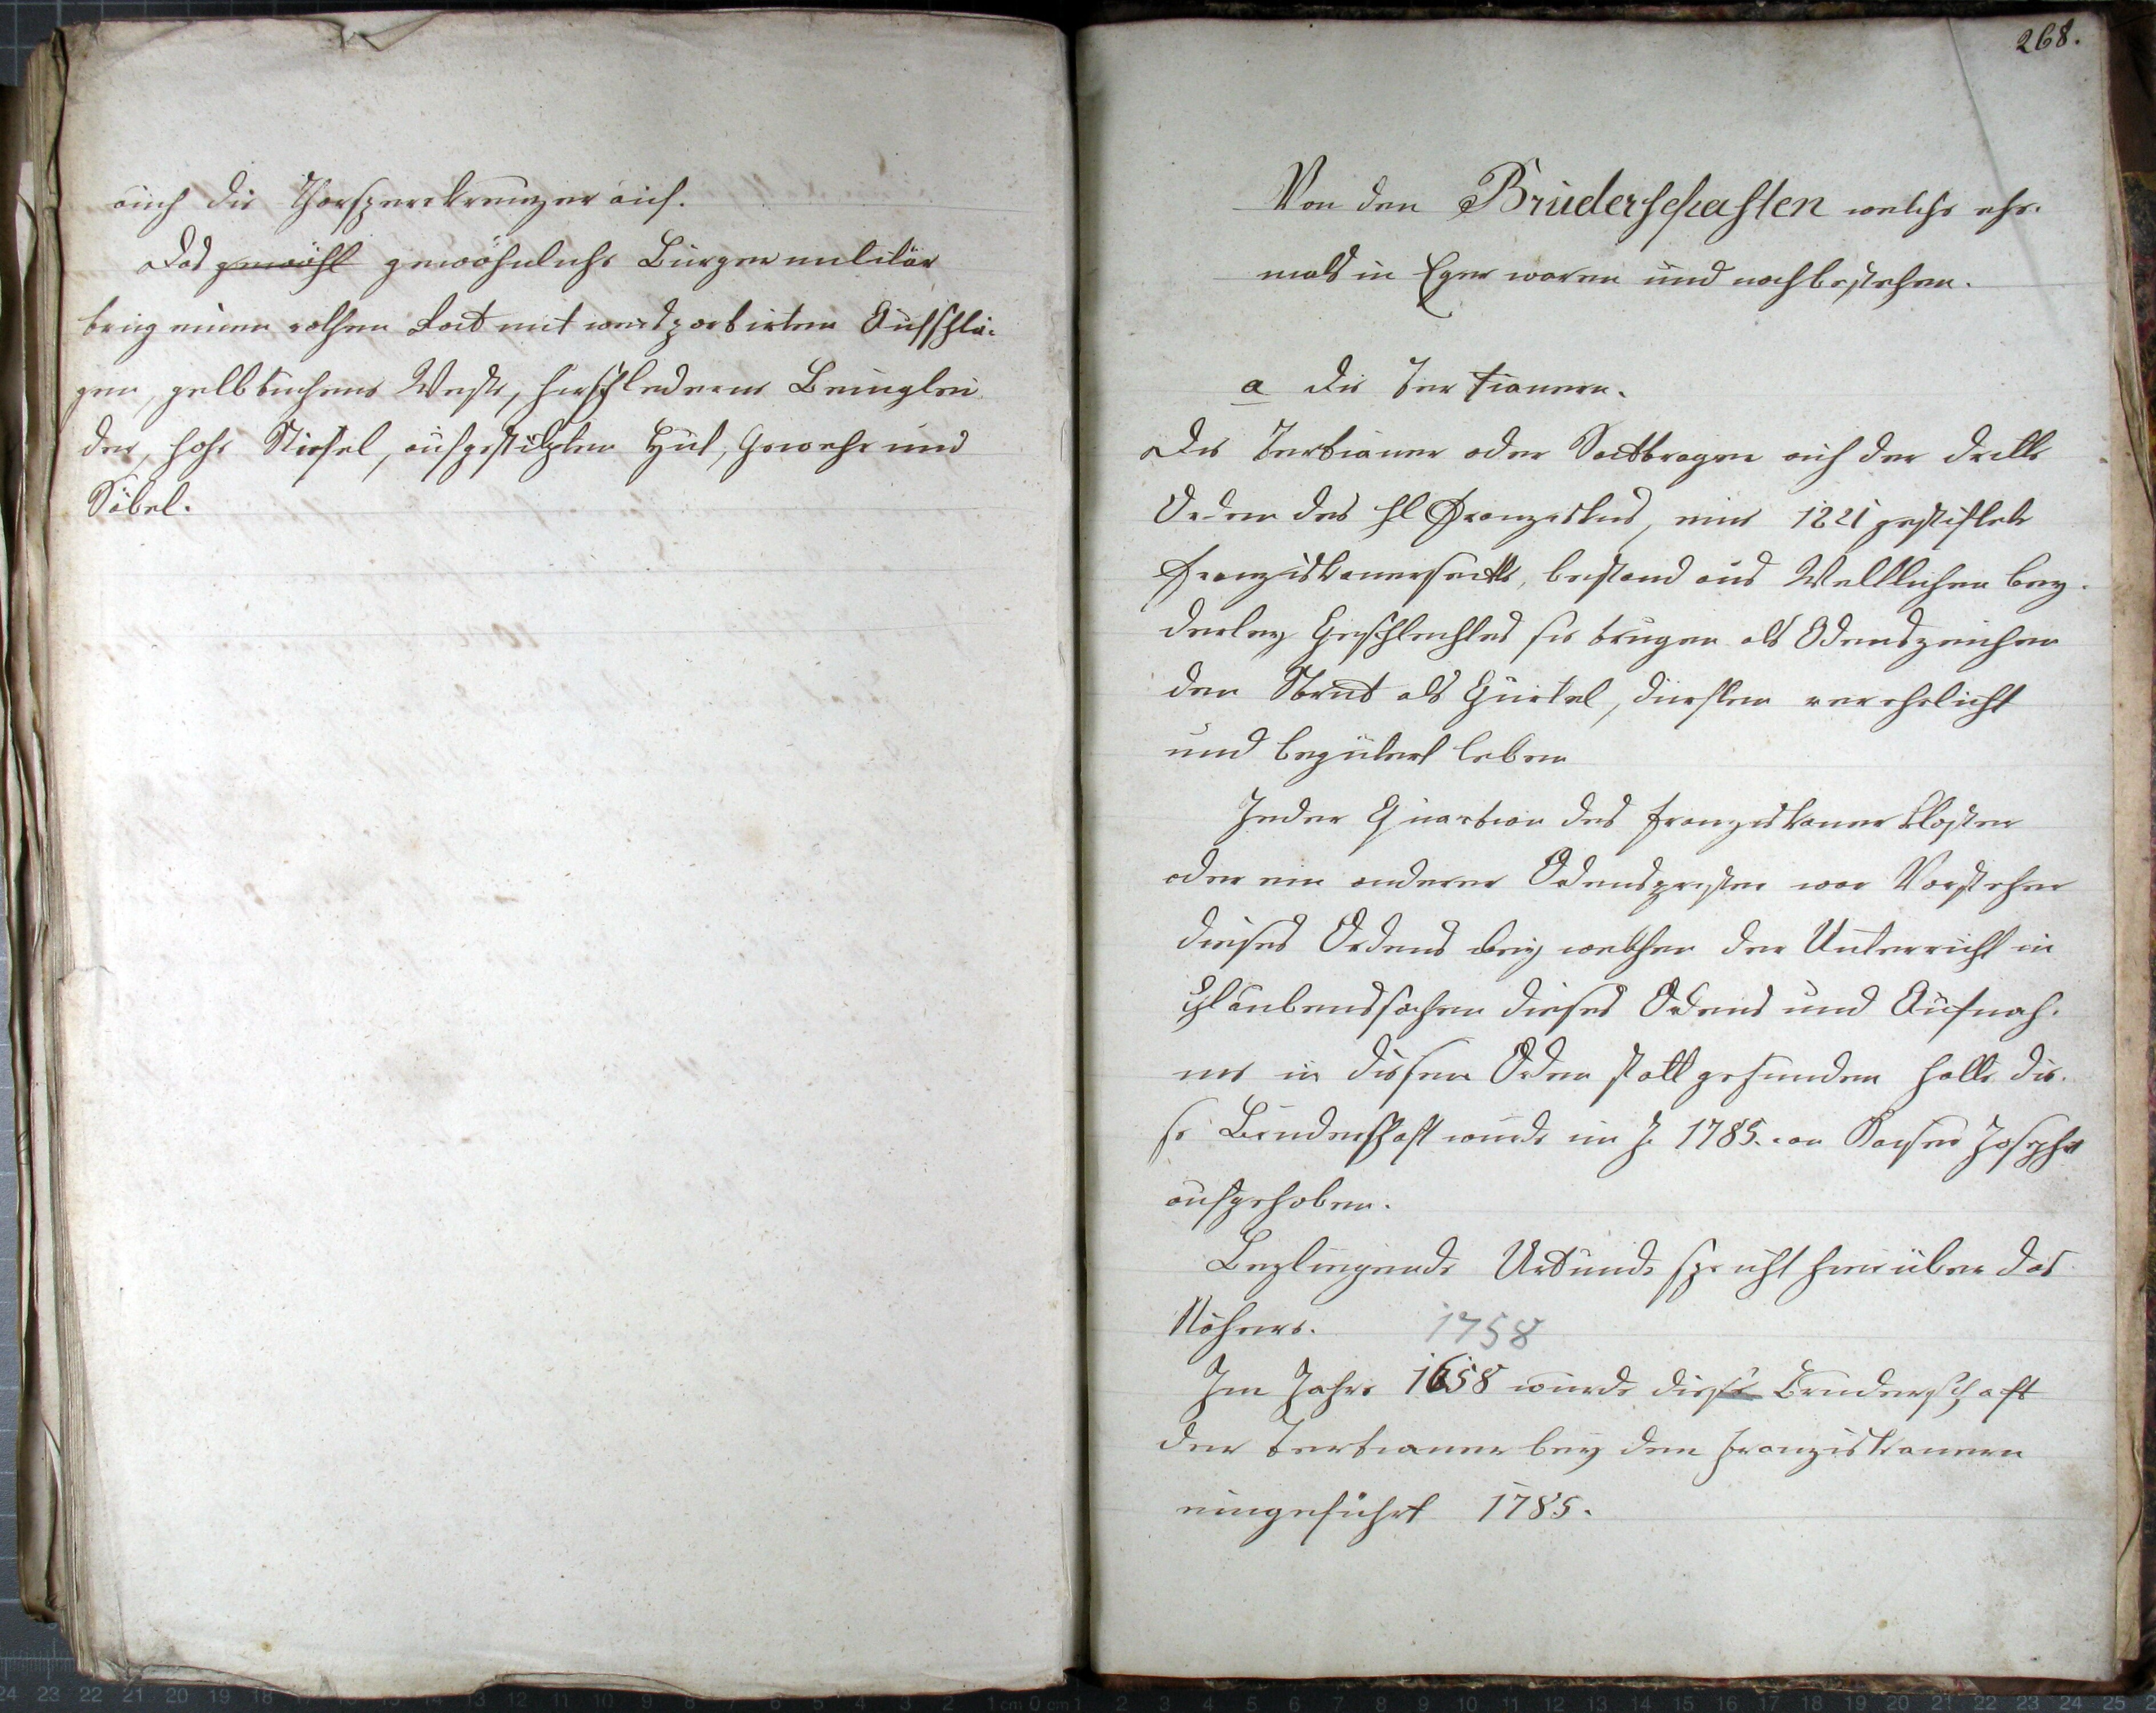 auch die Thorsperrkreuzer auf.
Das gewöhl gewöhnliche Bürgermilitär
trug einen rothen Rock mit Aufschlä-
gen, gelbtuchene Weste, hirschlederne Beinglei
der, hohe Stiefel, aufgestülpten Hut, Gewehr und
Säbel.
268.
Von den Brüderschaften welche ehe-
mals in Eger waren und noch bestehen.
a die Tertianern.
Die Tertianer oder auch der dritte
Orden des hl Franziskus, eine 1221 gestiftete
Franziskanersectte, bestand aus Weltlichen bey-
derley Geschlechtes sie trugen als Odenszeichen
den Strick als Gürtel, durften verehelicht
und begütert leben
Jeder Quartian des Franziskanerkloster
oder ein anderer Odenspriester war Vorsteher
dieses Ordens bey welcher der Unterricht in
Glaubenssachen dieses Odens und Aufnah-
me in diesen Oden statt gefunden hatte die-
se Bruderschaft wurde im J. 1785. von Kayser Joseph
aufgehoben.
Beyliegende Urkunde spricht hierüber das
Nähere. 1758
Im Jahre 1658 wurde diese Bruderschaft
der Tertianer bey den Franziskanern
eingeführt 1785.